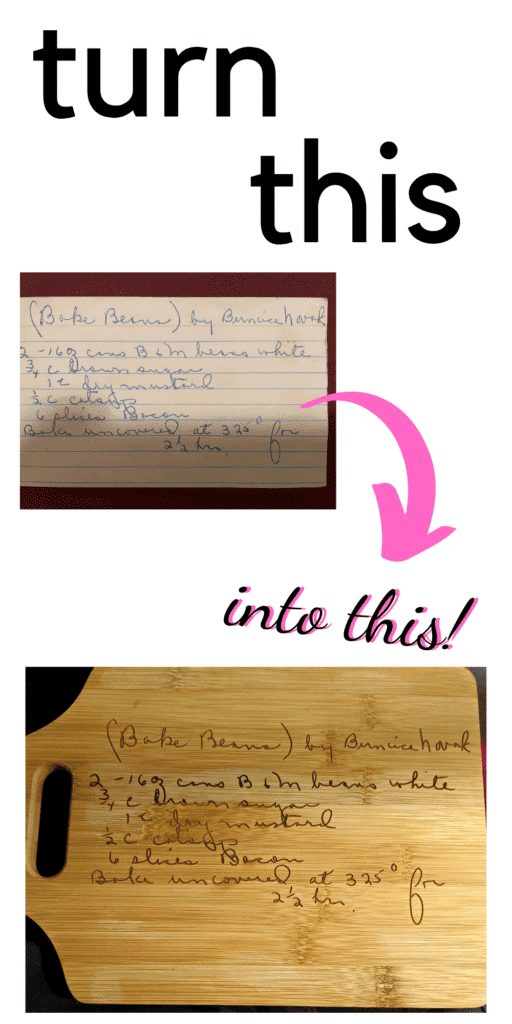 turn
this
(Bake Beans) by Bernice Novak
2 - 16oz cans B & M beans white
3/4 c brown sugar
1 t dry mustard
1/2 c catsup
6 slices Bacon
Bake uncovered at 325° for
2 1/2 hrs.
into this!
(Bake Beans) by Bernice Novak
2 - 16oz cans B & M beans white
3/4 c brown sugar
1 t dry mustard
1/2 c catsup
6 slices Bacon
Bake uncovered at 325° for
2 1/2 hrs.